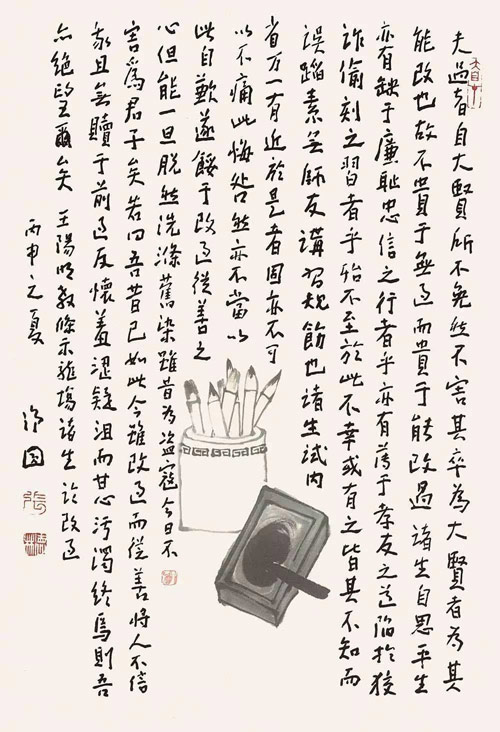 夫過者自大賢所不免然不害其卒為大賢者為其
能改也故不貴于無过而貴于能改過諸生自思平生
亦有缺于廉恥忠信之行者乎亦有薄于孝友之道陷於狡
诈偷刻之習者乎殆不至於此不幸或有之皆其不知而
誤蹈素無師友講習規飭也諸生試内
省万一有近於是者固亦不可
以不痛此悔咎然亦不當以
此自歉遂餒于改过從善之
心但能一旦脱然洗滌舊染雖昔為盗寇今日不
害爲君子矣若曰吾昔已如此今雖改过而從善將人不信
我且無贖于前过反懷羞澀疑沮而甘心污濁終焉則吾
亦絕望爾矣 王陽明教條示龍場諸生 改过
丙申之夏
張